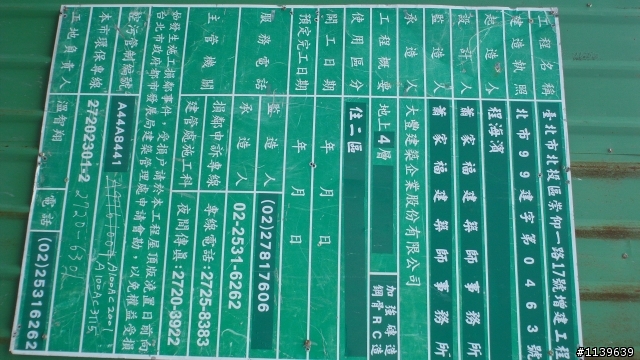 工程名稱 臺北市北投區崇仰一路17號增建工程
建造執照 北市99建字第0463號
起造人 程海濱
設計人 蕭家福建築師事務所
監造人 蕭家福建築師事務所
承造人 大豐建築企業股份有限公司
工程概要 地上4層 加強磚造 鋼骨RC造
使用區分 住二區
開工日期 年 月 日
預定完工日期 年 月 日
服務電話 監造人 (02)27817606
承造人 02-2531-6262
主管機關 損鄰申訴專線 專線電話:2725-8383
建管處施工科 夜間傳真:2720-3922
如發生施工損鄰事件,受損戶請於本工程屋頂版澆置日前向
台北市政府都市發展局建築管理處申請會勘,以免權益受損
空污管制編號 A44A8441 A100AC2001 A100AC3115
本市環保專線 27202301-2 2720-6301
工地負責人 溫智翔 電話 (02)25316262
#1139639